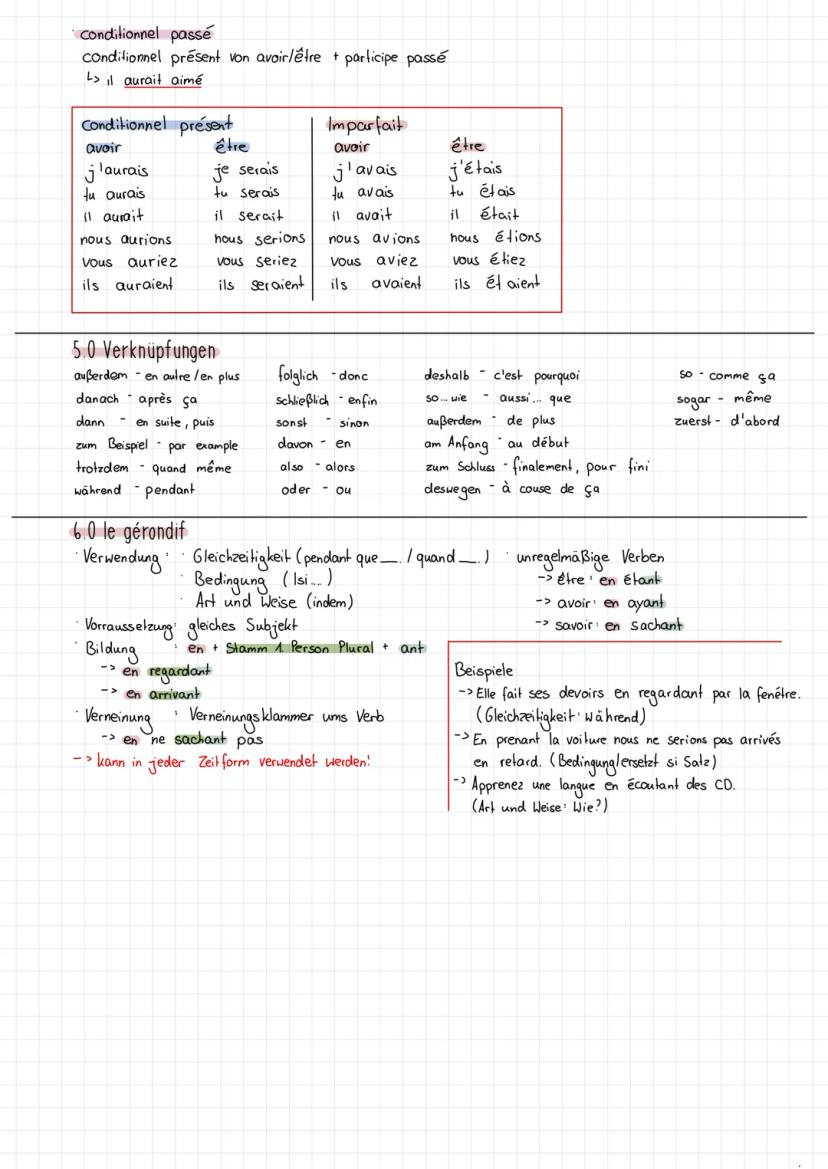 · conditionnel passé
conditionnel présent von avoir/être + participe passé
↳ il aurait aimé
conditionnel présent
avoir être
j'aurais je serais
tu aurais tu serais
il aurait il serait
nous aurions nous serions
vous auriez vous seriez
ils auraient ils seraient
Imparfait
avoir être
j'avais j'étais
tu avais tu étais
il avait il était
nous avions nous étions
vous aviez vous étiez
ils avaient ils étaient
5.0 Verknüpfungen
außerdem - en autre/en plus
danach - après ça
dann - en suite, puis
zum Beispiel - par example
trotzdem - quand même
während - pendant
folglich - donc
schließlich - enfin
sonst - sinon
davon - en
also - alors
oder - ou
deshalb - c'est pourquoi
so...wie - aussi... que
außerdem - de plus
am Anfang - au début
zum Schluss - finalement, pour fini
deswegen - à couse de ça
so - comme ça
sogar - même
zuerst - d'abord
6.0 le gérondif
· Verwendung: · Gleichzeitigkeit (pendant que __. / quand __.)
· Bedingung (Isi...)
· Art und Weise (indem)
· Vorraussetzung: gleiches Subjekt
· Bildung : en + Stamm 1. Person Plural + ant
-> en regardant
-> en arrivant
· Verneinung : Verneinungsklammer ums Verb
-> en ne sachant pas
-> kann in jeder Zeitform verwendet werden!
· unregelmäßige Verben
-> être: en étant
-> avoir: en ayant
-> savoir: en sachant
Beispiele
-> Elle fait ses devoirs en regardant par la fenêtre.
(Gleichzeitigkeit: Während)
-> En prenant la voiture nous ne serions pas arrivés
en retard. (Bedingung/ersetzt si Satz)
-> Apprenez une langue en écoutant des CD.
(Art und Weise: Wie?)